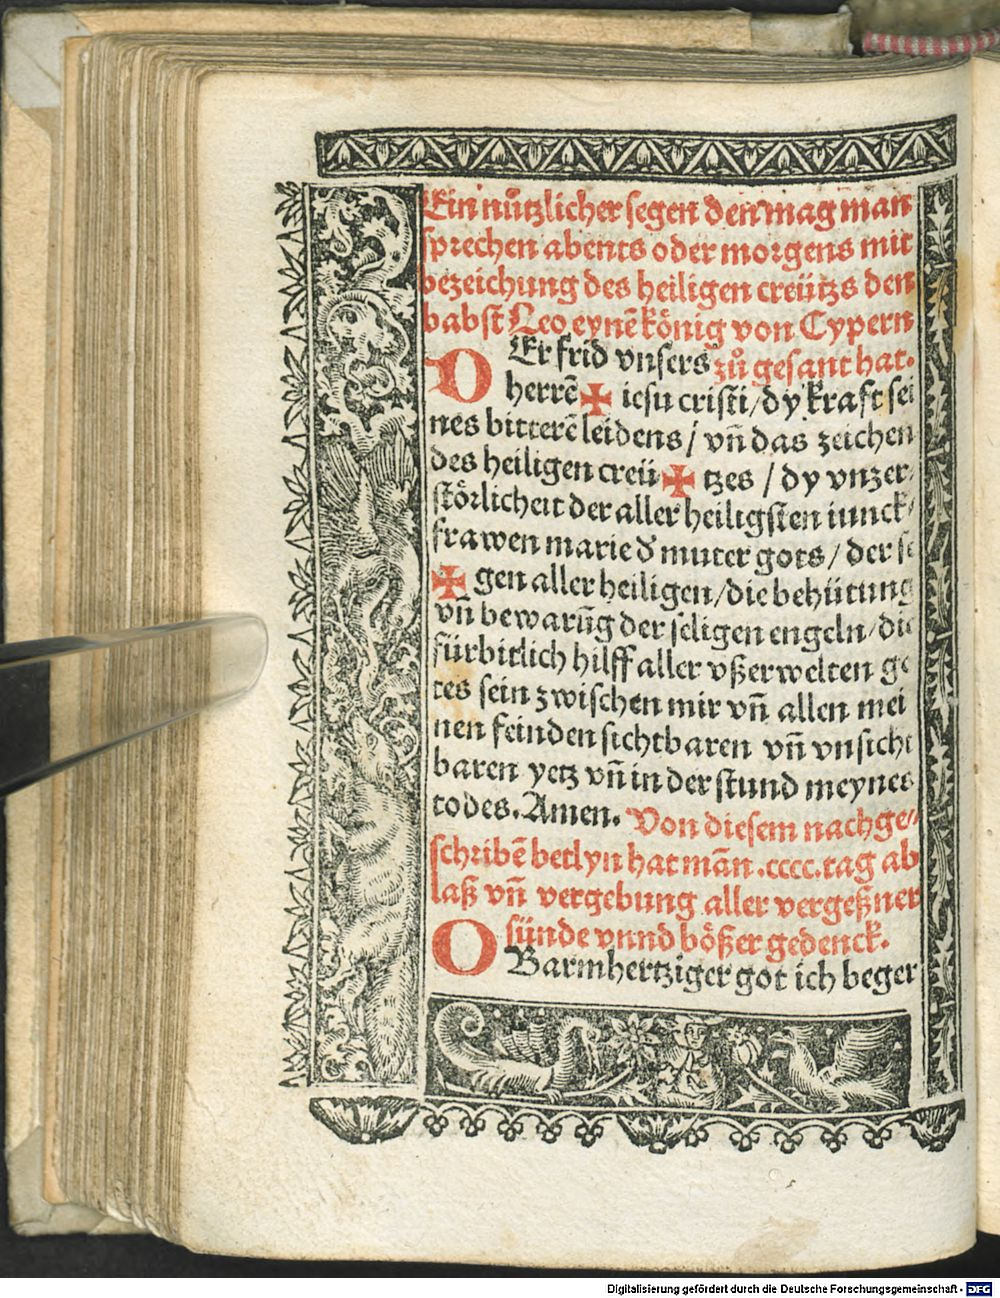 Ein nützlicher segen den mag man
sprechen abents oder morgens mit
bezeichung des heiligen creützs den
babst Leo eynē könig von Cypern
DEr frid vnsers zů gesant hat.
herrē ✠ iesu cristi / dy kraft sei
nes bitterē leidens / vn̄ das zeichen
des heiligen creü ✠ tzes / dy vnzer
störlicheit der aller heiligsten iunck/
frawen marie d' muter gots / der se
✠ gen aller heiligen / die behütung
vn̄ bewarūg der seligen engeln / die
fürbitlich hilff aller vßerwelten go
tes sein zwischen mir vn̄ allen mei
nen feinden sichtbaren vn̄ vnsicht
baren yetz vn̄ in der stund meynes
todes. Amen. Von diesem nachge/
schribē betlyn hat mān .cccc. tag ab
laß vn̄ vergebung aller vergeßner
sünde vnnd bößer gedenck.
O Barmhertziger got ich beger
Digitalisierung gefördert durch die Deutsche Forschungsgemeinschaft - DFG